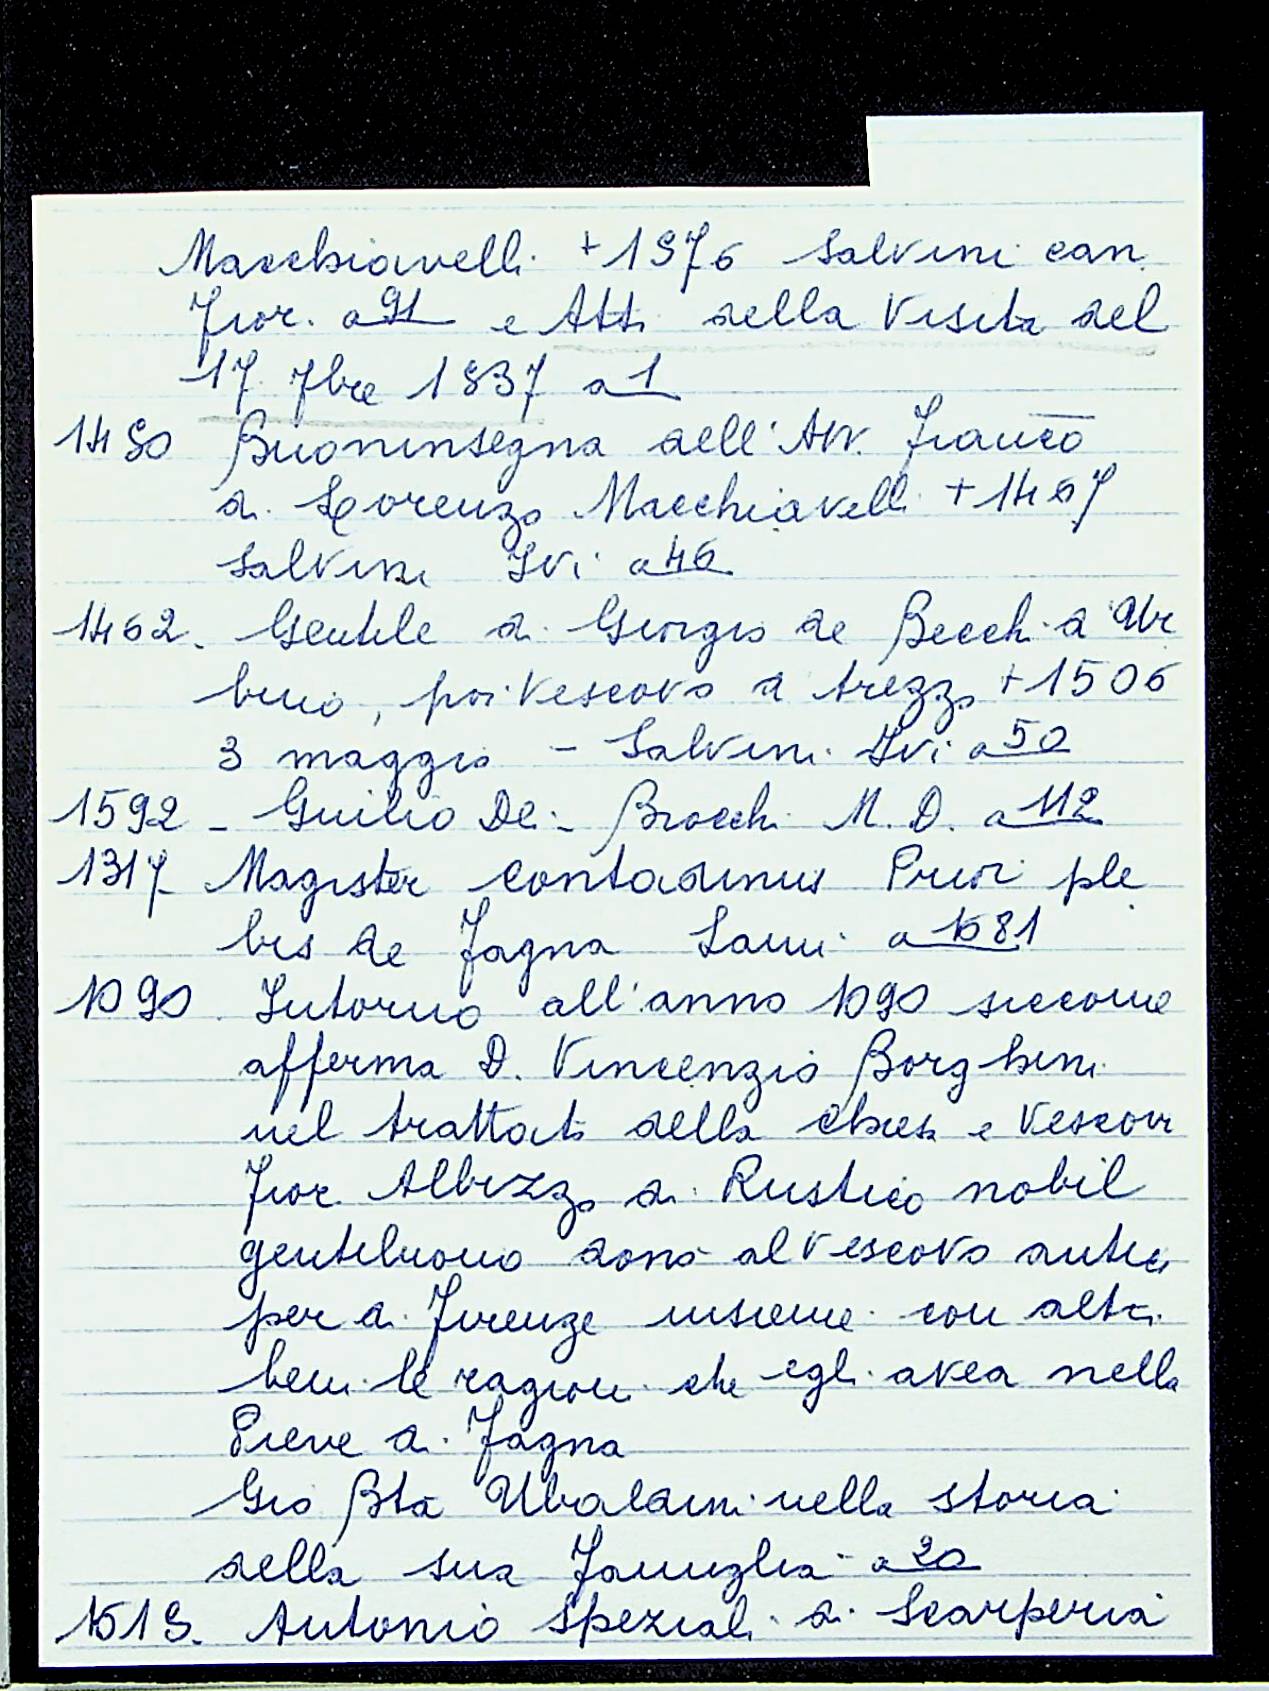 Macchiavelli +1576 Salvini can
fior. a 91 e Atti della Visita del
17 7bre 1837 a 1
1450 Buoninsegna dell'Avv. Franco
di Lorenzo Macchiavelli +1467
Salvini Ivi a 46
1462. Gentile di Giorgio de Becchi d'Ur
bino, poi Vescovo d'Arezzo +1506
3 maggio - Salvini Ivi a 50
1592 - Guilio Del - Brocchi M. D. a 112
1317 Magister Contadinus Prior ple
bis de Fagna Lami a 1681
1090. Intorno all'anno 1090 siccome
afferma D. Vincenzio Borghini
nel trattato della chiesa e Vescovi
fior. Albizzo di Rustico nobil
gentiluomo donò al Vescovo
per di Firenze insieme con altri
beni le ragioni che egli avea nella
Pieve di Fagna
Gio Bta Ubaldini nella storia
della sua Famiglia a 20
1513. Antonio Speziali di Scarperia